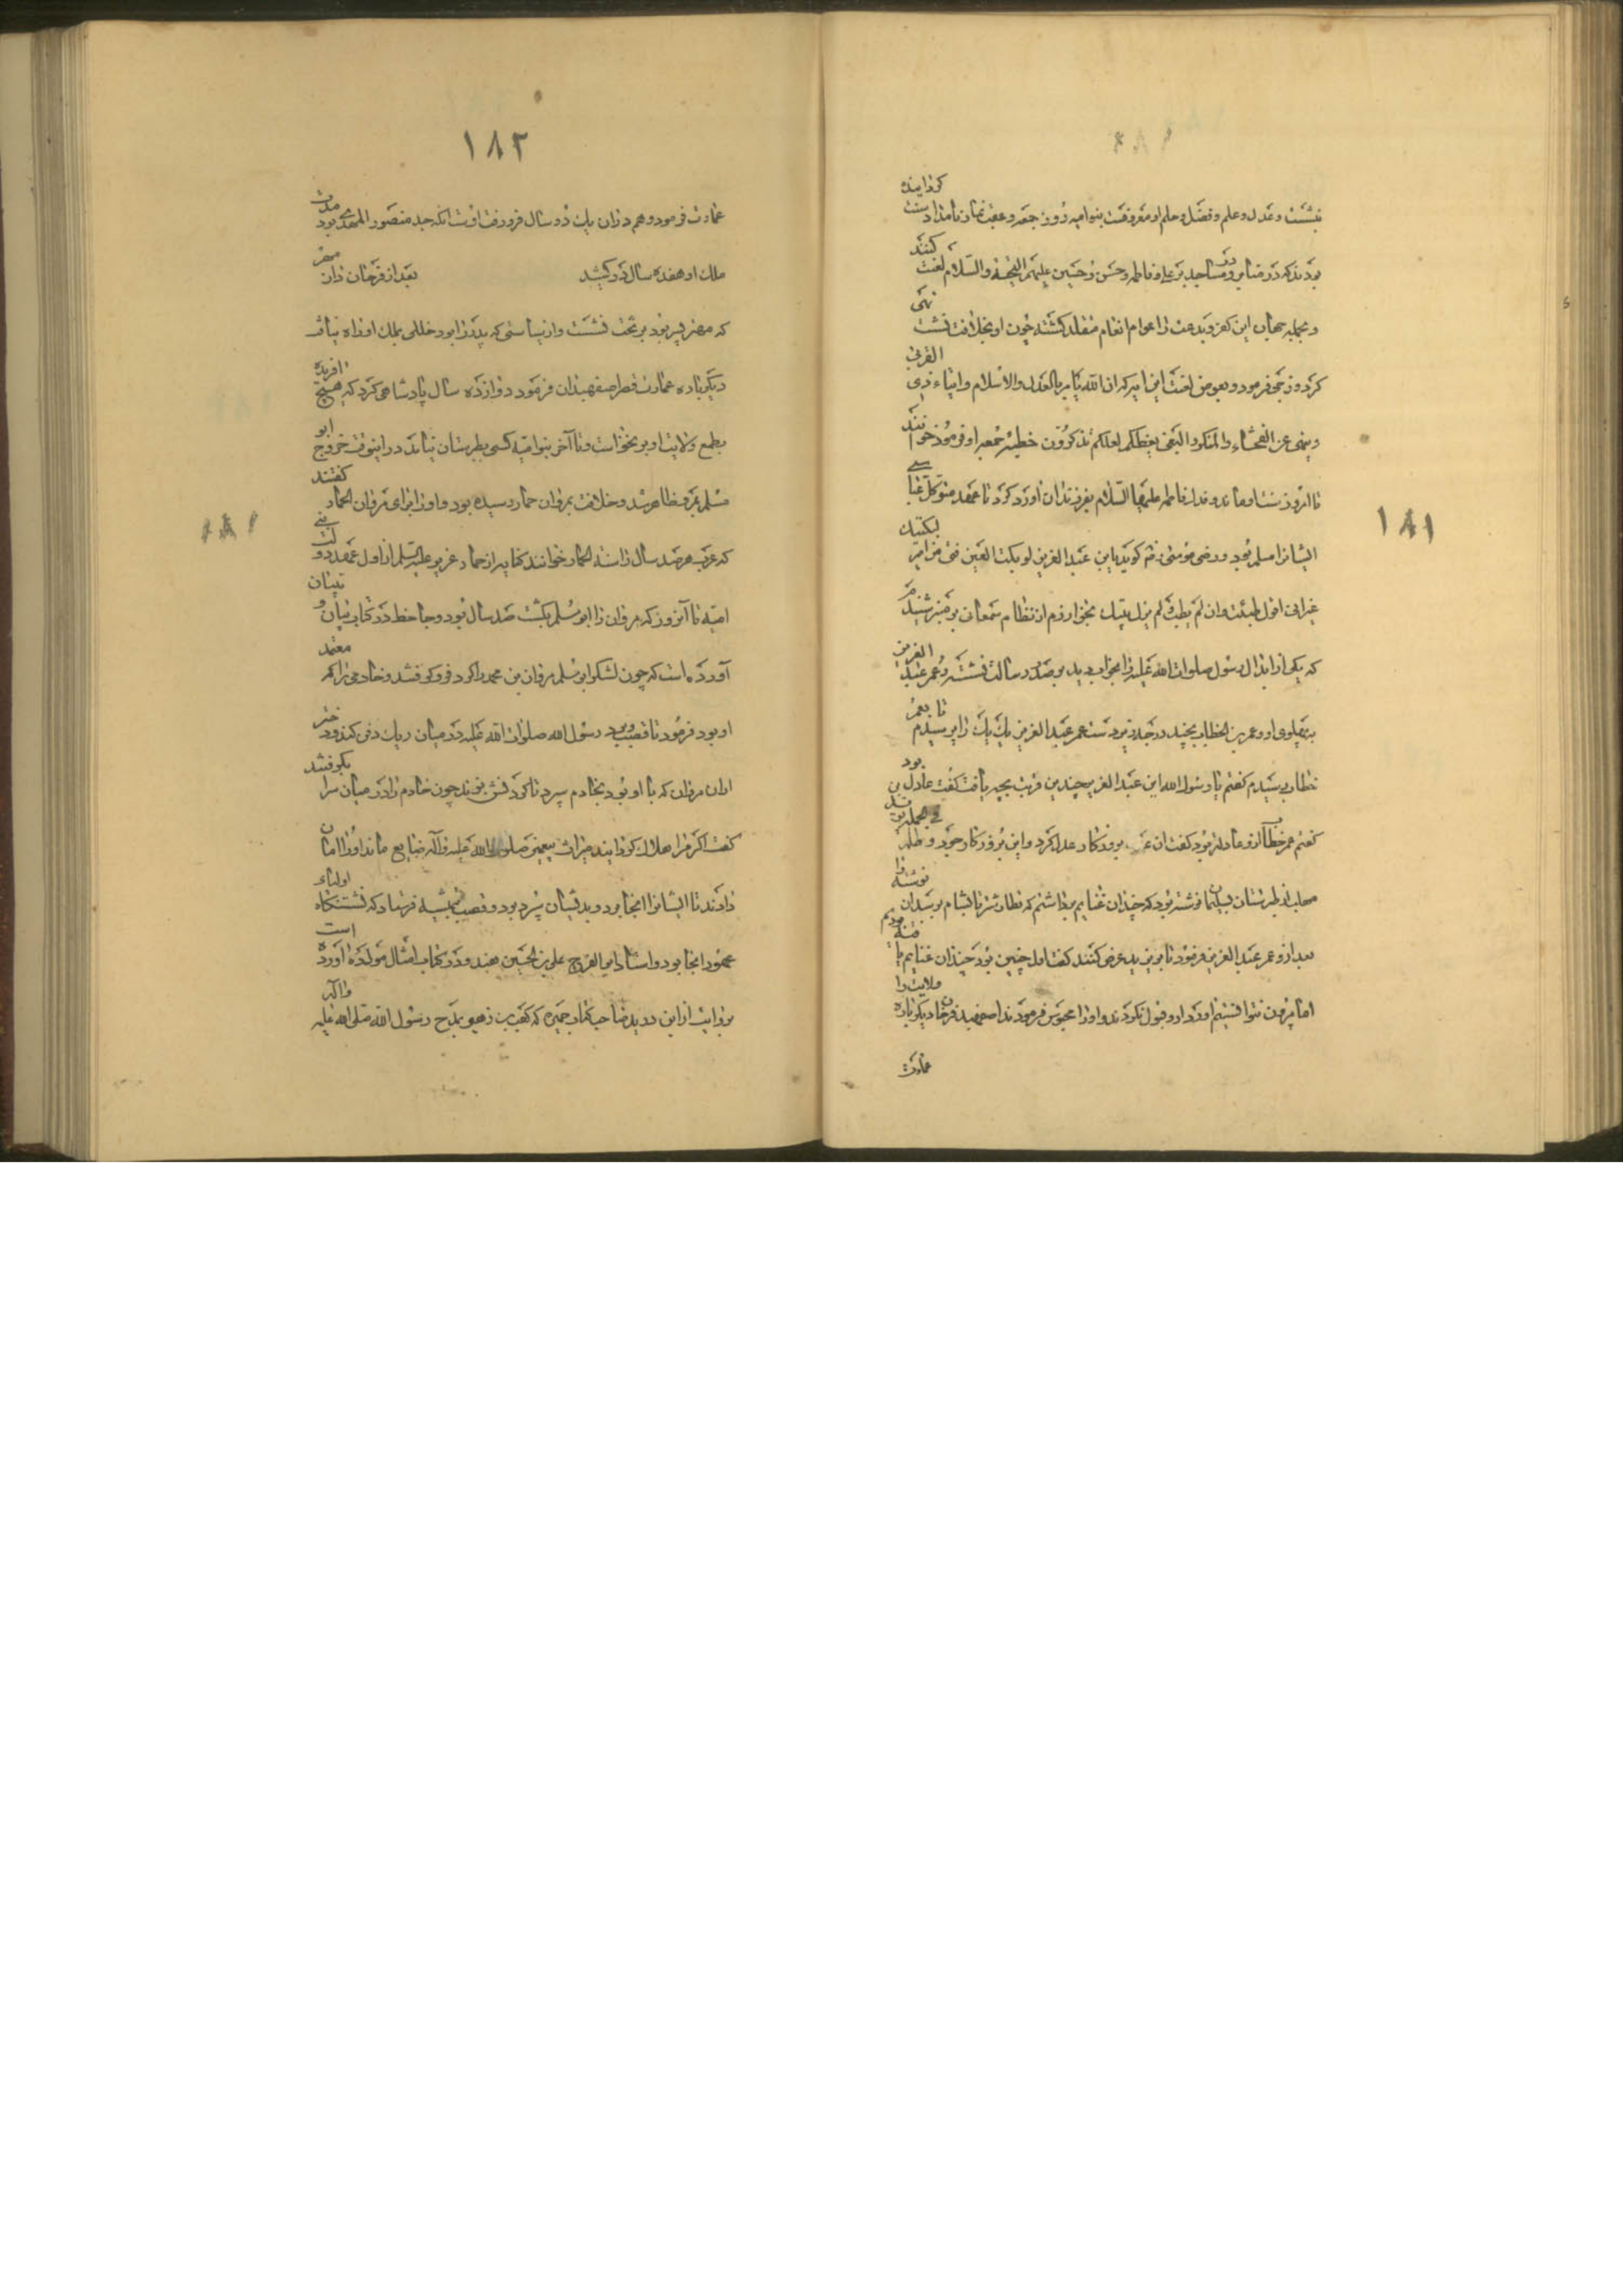 ۱۸۱
بنشست و عدل و علم و فضل و حلم او معروفست بنوامیه روز جمعه و عقب نماز بامداد سنت گردانیده
بودند که در منابر و در مساجد بر علی و فاطمه و حسن و حسین علیهم التحیة والسلام لعنت کنند
و بجمله جهان این کفر و بدعت را عوام انعام متقلد گشته چون او بخلافت نشست نهی
کرد و زجر فرمود و بعوض لعنت این آیه که ان الله یأمر بالعدل والاحسان وایتاء ذی القربی
وینهی عن الفحشاء والمنکر والبغی یعظکم لعلکم تذکرون خطبه جمعه او فرمود خوانند
تا امروز سنت او بماند و فدک فاطمه علیها السلام بفرزندان او رد کرد تا عهد متوکل عباسی
ایشان را مسلم بود و رضی موسی گوید یابن عبد العزیز لو بکت العین فتی من امیة لبکیتک
غیر انی اقول طبت وان لم یطب ولم یزل بیتک بخوارزم از نظام سمعانی بر منبر شنیدم
که یکی از ابدال رسول صلوات الله علیه را بخواب دید بر صدر رسالت نشسته و عمر عبد العزیز
بپهلوی او و عمر بن الخطاب بچند درجه زیر دست عمر عبد العزیز یک یک را پرسیدم تا بعمر
خطاب رسیدم گفتم یا رسول الله ابن عبد العزیز چندین قربت بچه یافت گفت عادل بود
گفتم عمر خطاب ازو عادلتر بود گفت آن بروزگار عدل کرد و این بروزگار جور و ظلم
مهلب از طبرستان بسلیمان نوشته بود که چندان غنایم برداشتم که قطار شتر تا بشام برسد آن نوشته را
بعد ازو عمر عبد العزیز فرمود تا بر یزید عرض کنند گفت اول چنین بود چندان غنایم یافته بودیم
اما بیرون نتوانستیم آورد ازو قبول نکردند و او را محبوس فرمودند اصفهبد فرخان دیگر باره ولایت را
عمارت
۱۸۲
عمارت فرمود و هم در آن یک دو سال فرو رفت اوست آنکه جد منصور المهدی بود مدت
ملک او هفده سال در کشید بعد از فرخان دازمهر
که مهتر پسر بود بر تخت نشست و از سیاستی که پدر را بود خللی بملک او راه نیافت
دیگر باره عمارت قصر اصفهبدان فرمود دوازده سال پادشاهی کرد که هیچ آفریده
بطمع ولایت او بر نخاست و تا آخر بنوامیه کسی بطبرستان نیامد در این وقت خروج ابو
مسلم بمرو ظاهر شد و خلافت بمروان حمار رسیده بود و او را برای مروان الحمار گفتند
که عرب هر صد سال را سنة الحمار خوانند کنایه از حمار عزیر علیه السلم از اول عهد دولت بنی
امیه تا آنروز که مروان را ابو مسلم بکشت صد سال بود و جاحظ در کتاب بیان و تبیان
آورده است که چون لشکر ابو مسلم مروان بن محمد را گرد فرو گرفتند و خادمی را که معتمد
او بود فرمود تا قضیب و برد رسول الله صلوات الله علیه در میان ریک دفن کند و دختر
از آن مروان که با او بود بخادم سپرد تا گردنش بزند چون خادم را در میان سرا بگرفتند
گفت اگر مرا هلاک گردانید میراث پیغمبر صلوات الله علیه و آله ضایع ماند او را امان
دادند تا ایشان را آنجا برد و بدیشان سپرد برد و قضیب فرستاد که نشستنگاه اولیاء
عهود آنجا بود و استاد ابو الفرج علی بن الحسین هندو در کتاب امثال مولده آورده است
بروایت از ابن درید صاحب کتاب جمهره که کعب بن زهیر بمدح رسول الله صلی الله علیه وآله